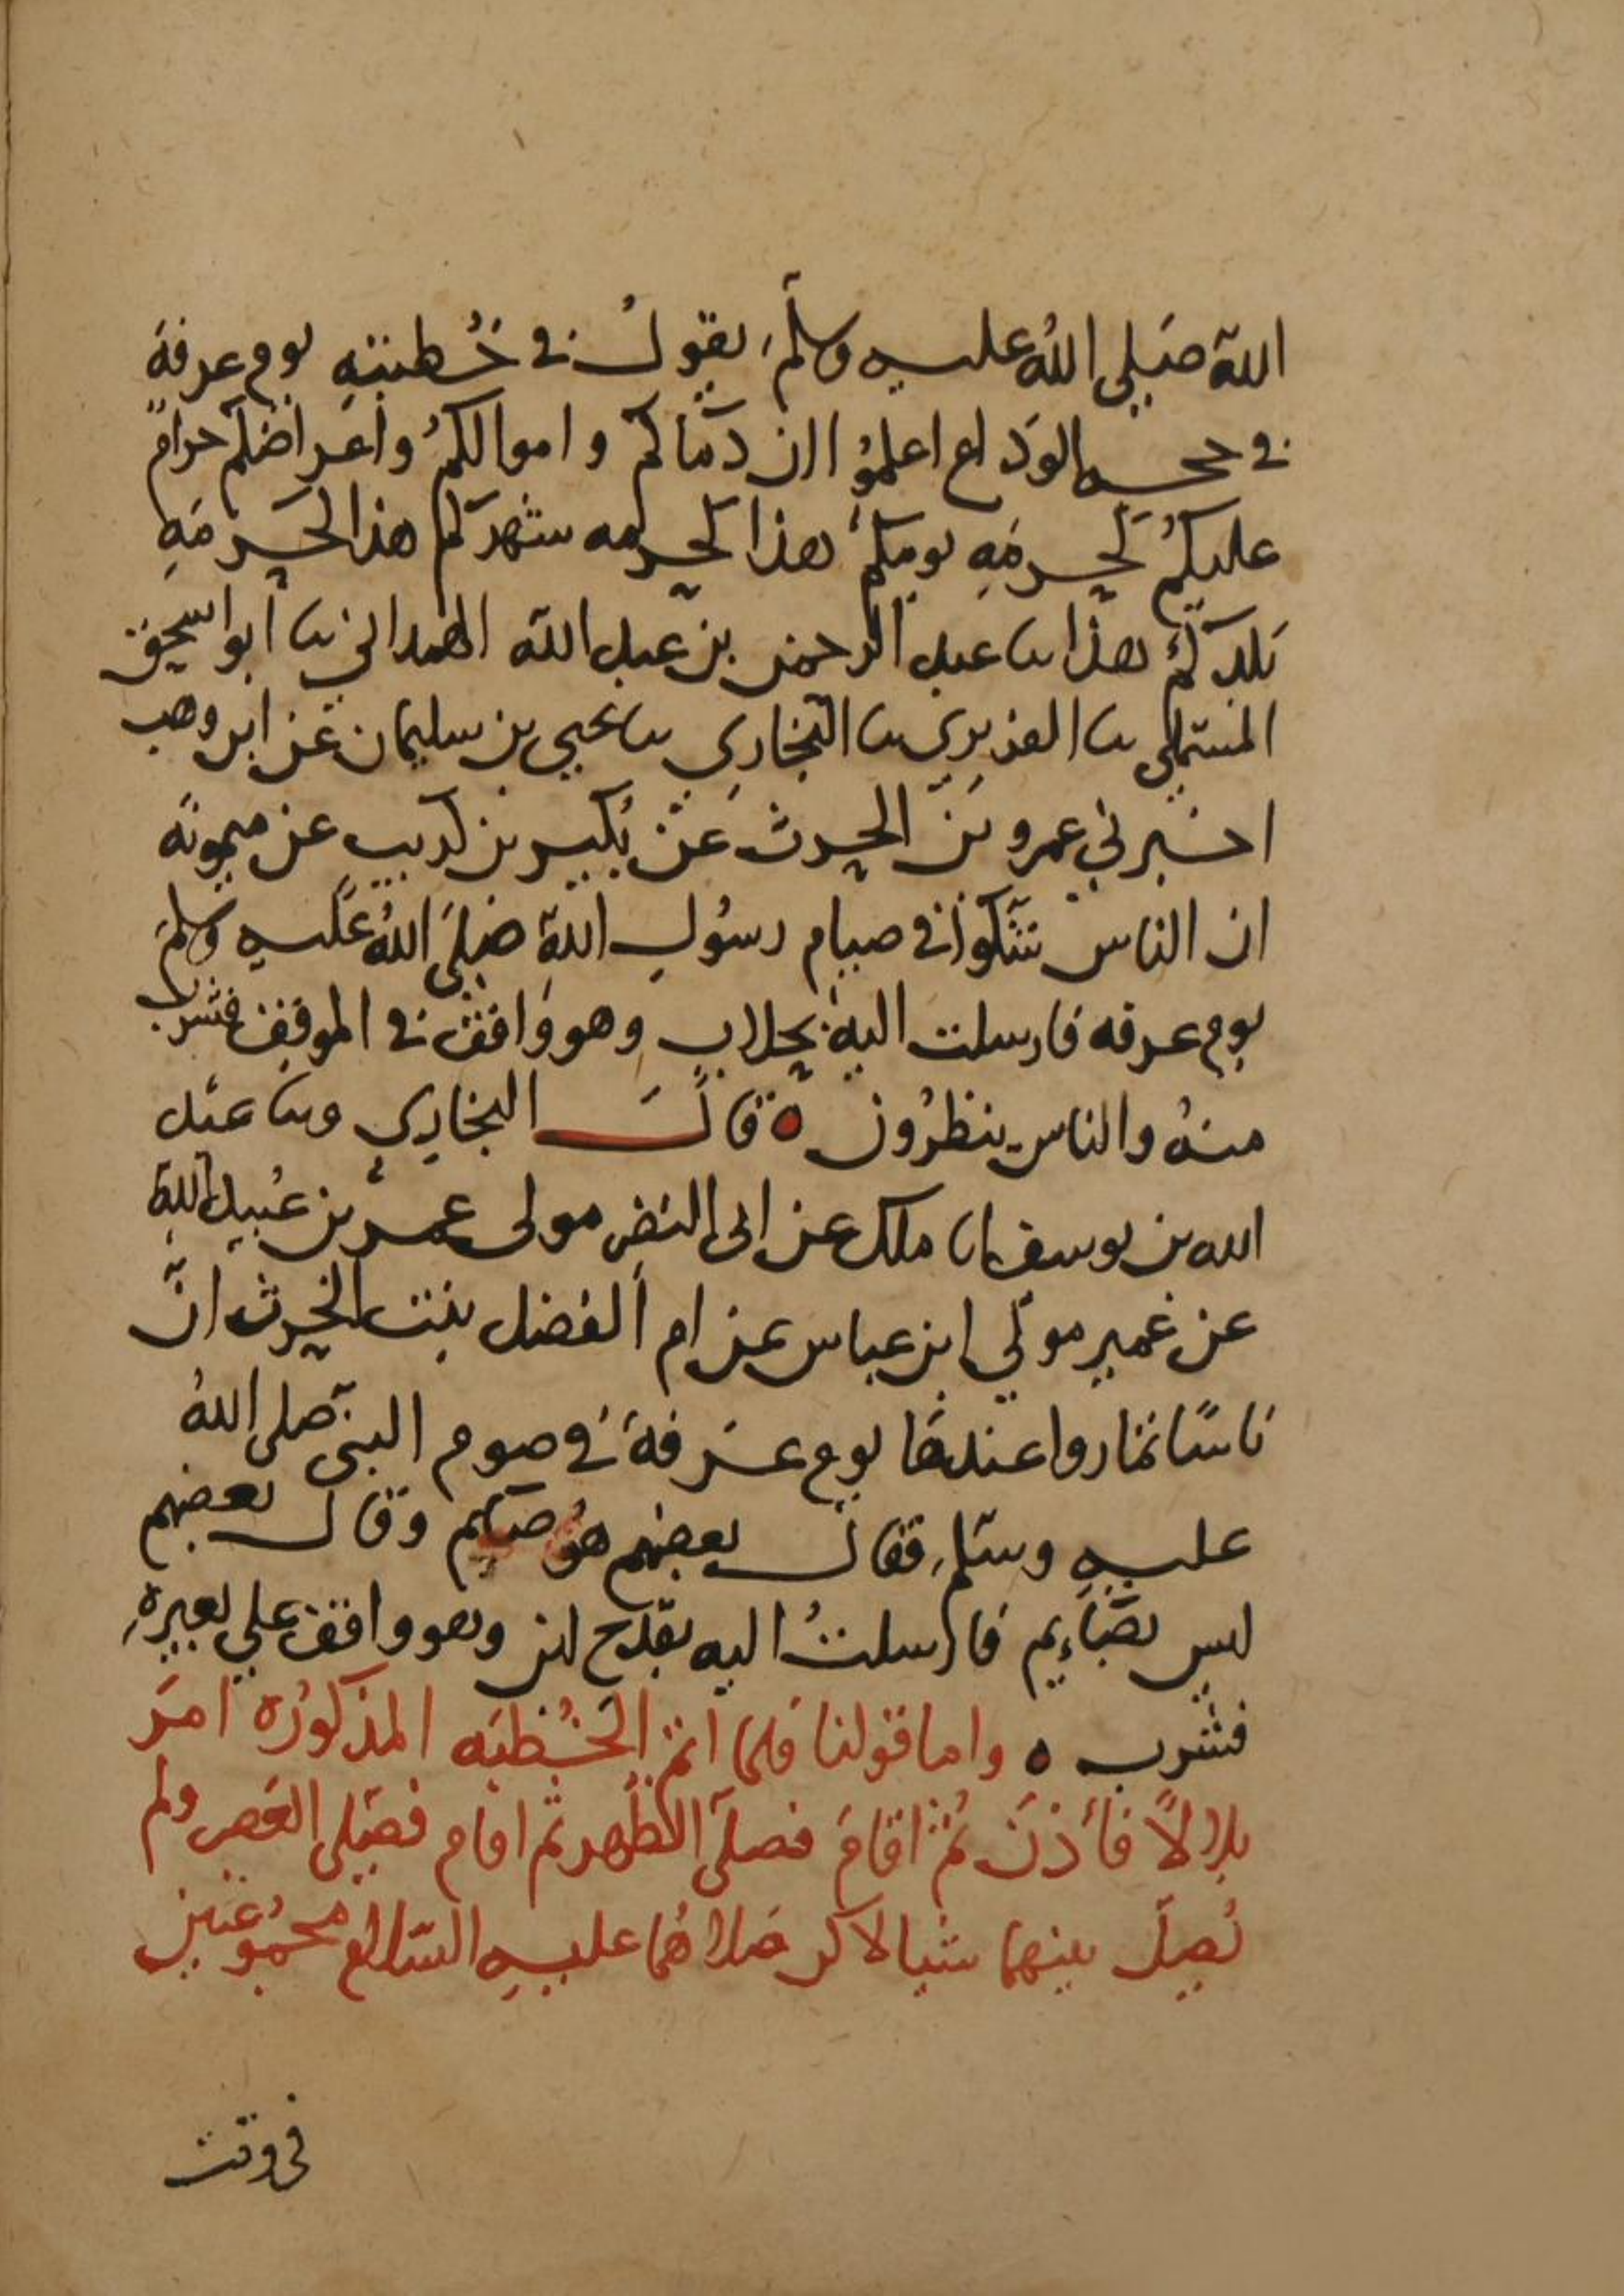 اللهِ صَلى اللهُ عليه وسلم يقولُ في خُطبتِهِ يوم عرفة
في حجه الوَداع اعلمُوا ان دمَاكم واموالكمُ واعراضكم حرامٌ
عليكُم كحرمَةِ يومِكمُ هذا كحرمه شهركم هذا كحرمَةِ
بَلدكمُ هذا نا عبد الرحمن بن عبد الله الهمداني نا ابو اسحق
المستملي نا الفربري نا البخاري نا يحيي بن سليمان عن ابن وهب
اخبرني عمرو بن الحرث عن بُكير بن كريب عن ميمونَه
ان الناس شكوا في صيام رسُولِ اللهِ صَلى اللهُ عليه وسلم
يوم عرفه فارسلت اليه بحلابٍ وهو واقف في الموقف فشرب
منهُ والناس ينظرُون ه قالَ البخاري ونا عبد
الله بن يوسف انا ملك عن ابى النضر مولى عمر بن عُبيد اللهِ
عن عمير مولي ابن عباس عن ام الفضل بنت الحرث انَّ
ناسًا تماروا عندهَا يوم عَرفة في صوم النبي صلى اللهُ
عليهِ وسلم فقال بعضهم هُو صايم وقال بعضهم
ليس بصَاءيم فارسلتُ اليه بقدح لبن وهو واقف علي بعيرهِ
فشرب ه واما قولنا فلما اتم الخُطبَه المذكورَه امَر
بلالاً فأذنَ ثُم اقامَ فصلى الظهر ثم اقام فصَلى العَصر ولم
يُصلّ بينهما شيا لاكن صَلاهُما عليهِ السّلام مجمُوعتين
في وقت